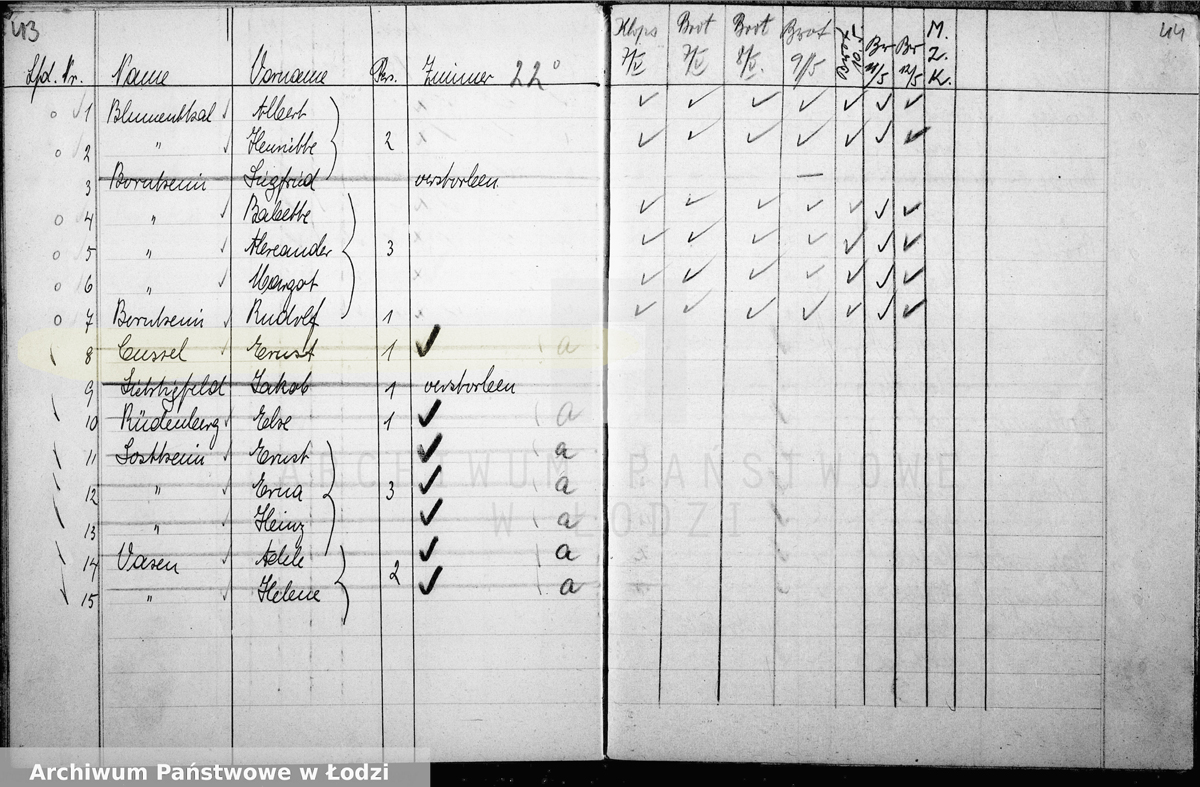 43
44
Lfd. Nr. Name Vorname Prs. Zimmer 22° Klops 7/V Brot 7/V Brot 8/V. Brot 9/5 Br 11/5 Br 12/5 M. Z. K.
1 Blumenthal Albert
2 " Henriette 2
3 Borntheim Siegfried verstorben
4 " Babette
5 " Alexander 3
6 " Margot
7 Borntheim Rudolf 1
8 Cussel Ernst 1 a
9 Jakob 1 verstorben
10 Rüdenberg Else 1 a
11 Ernst a
12 " Erna 3 a
13 " Heinz a
14 Vasen Adele 2 a
15 " Helene a
ARCHIWUM PAŃSTWOWE
W ŁODZI
Archiwum Państwowe w Łodzi